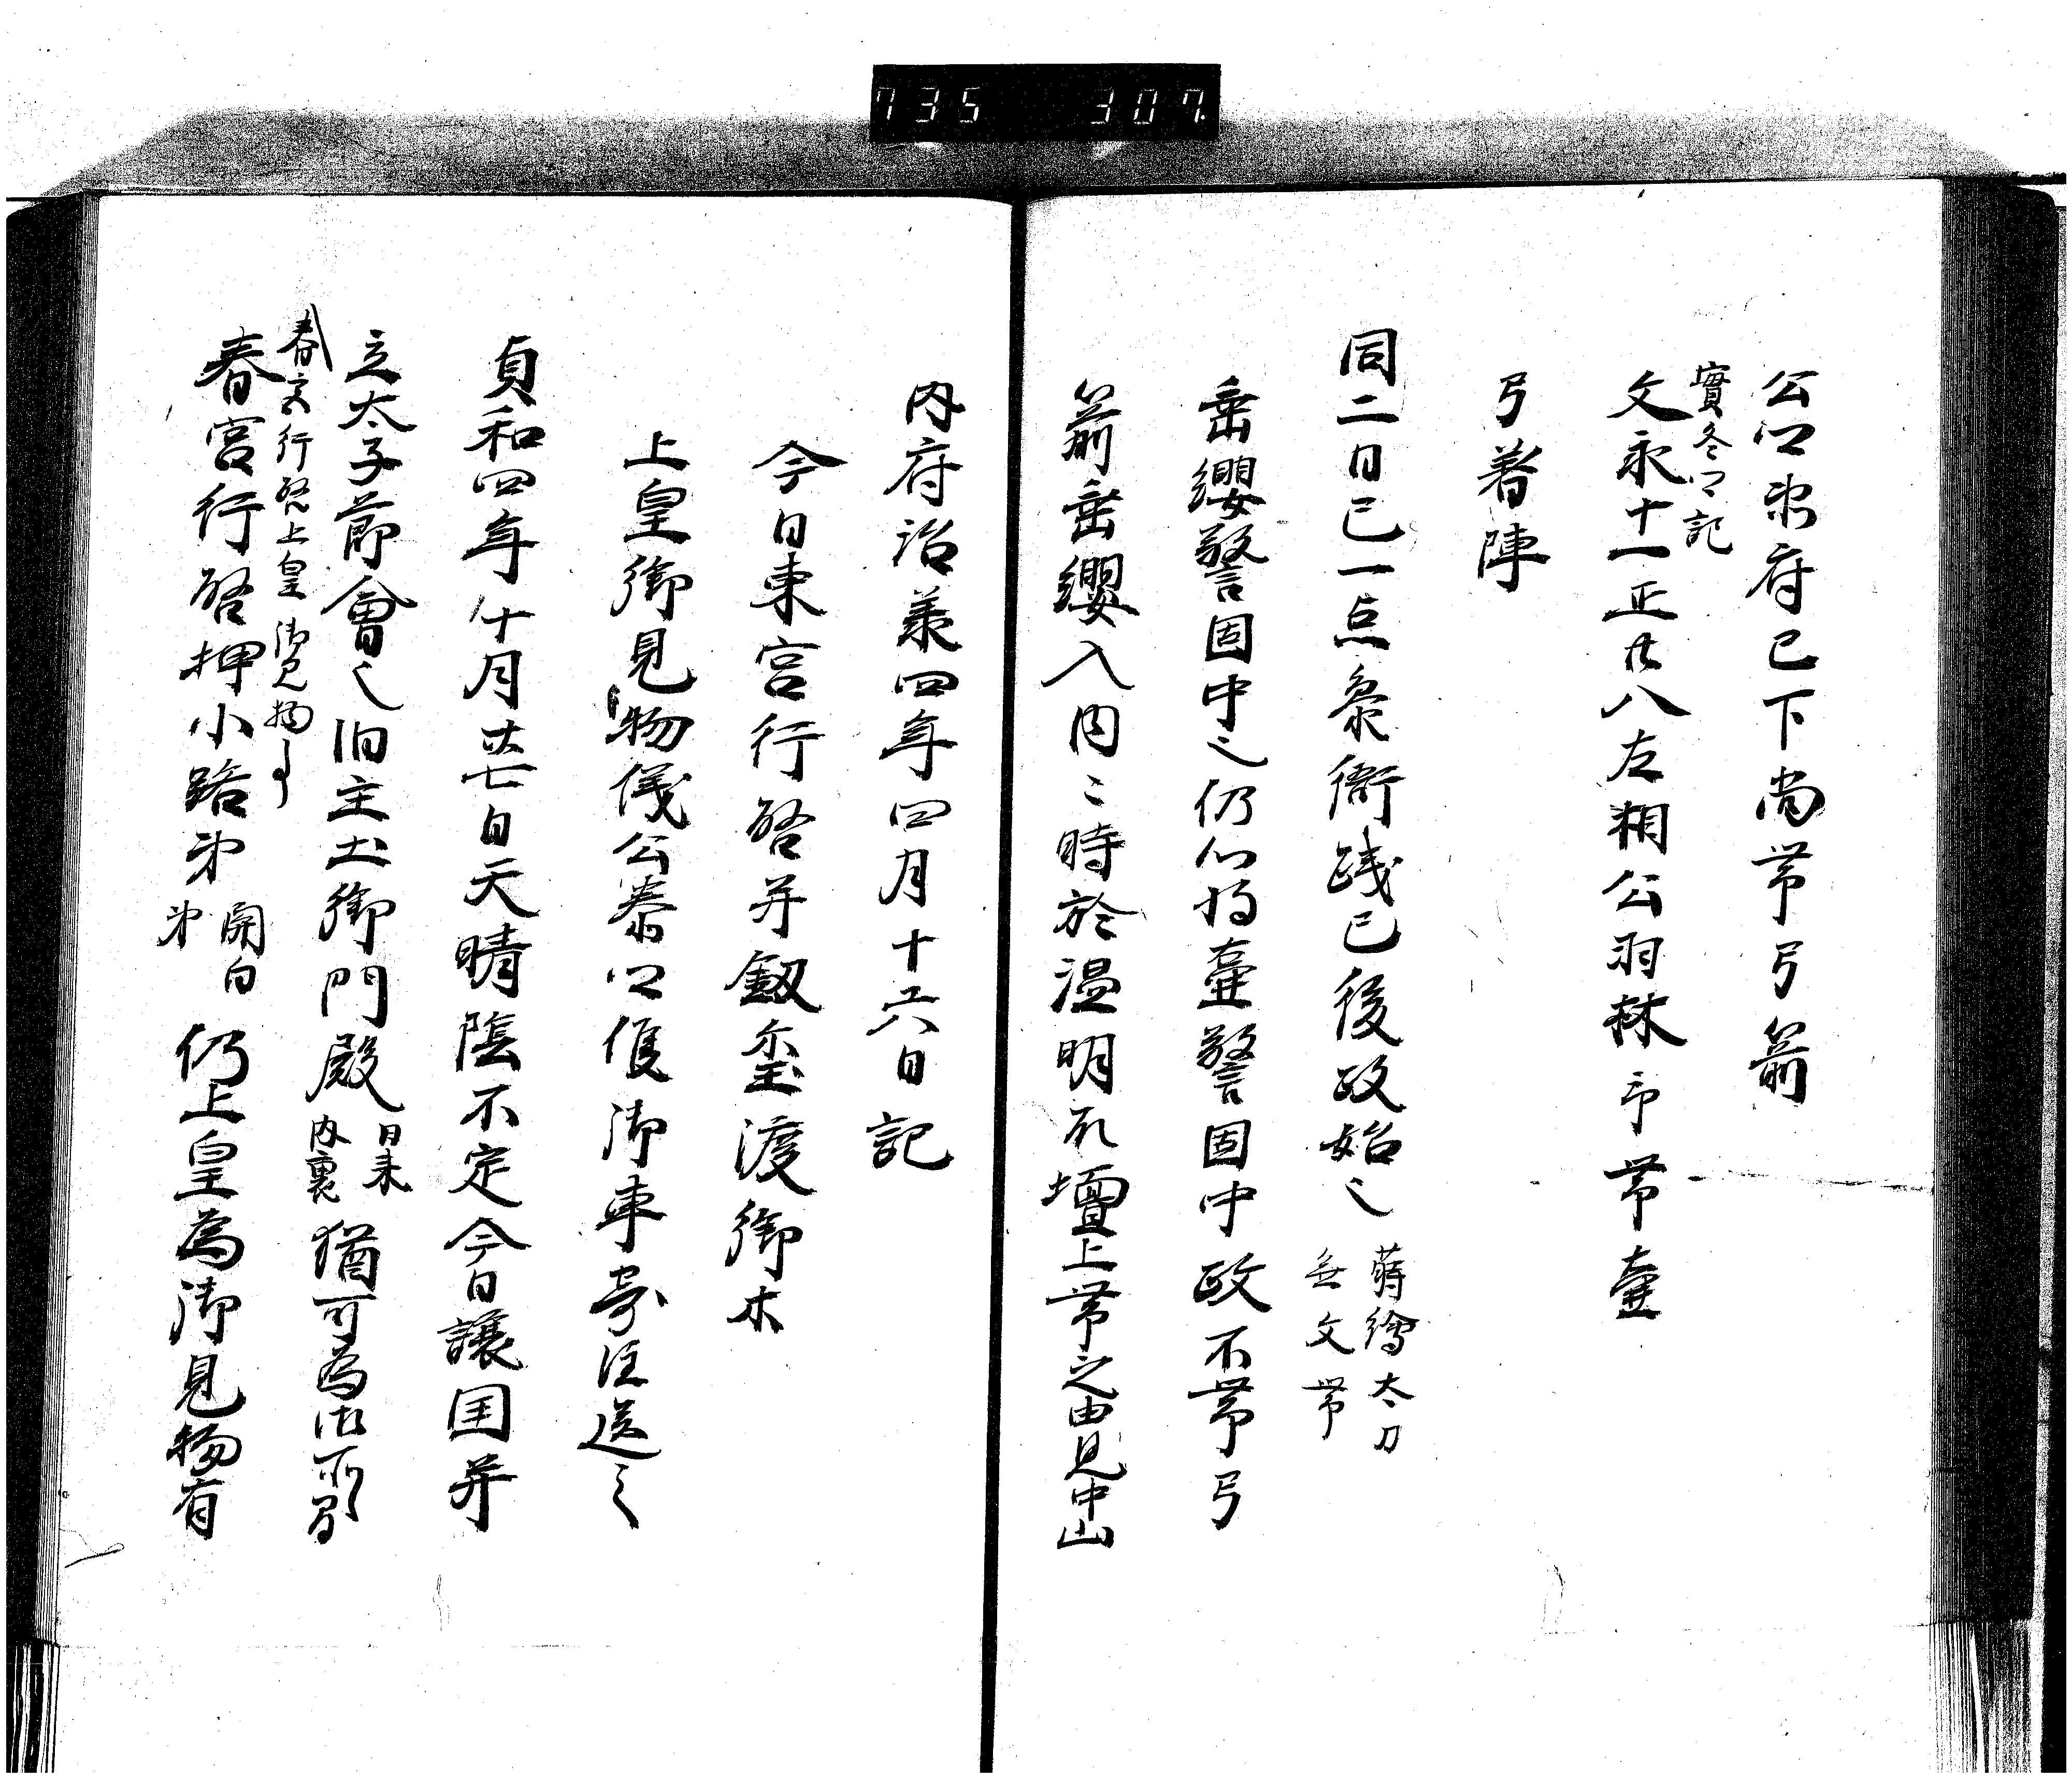 735 307
公卿衛府已下尚帯弓箭
實冬卿記
文永十一正廿八左相公羽林即帯壷
弓著陣
同二日已一点参衙残已後政始云々 蒔繪太刀 無文帯
垂纓警固中也仍持壷警固中政不帯弓
箭垂纓入内々時於温明殿壇上帯之由見中山
内府治承四年四月十六日記
今日東宮行啓并劔璽渡御木
上皇御見物儀公泰卿候御車寄注送之
貞和四年十月廿七日天晴陰不定今日譲国并
立太子節會也旧主土御門殿 日来 内裏 猶可為御所歟
春宮行啓上皇御見物事
春宮行啓押小路第 関白 第 仍上皇為御見物有